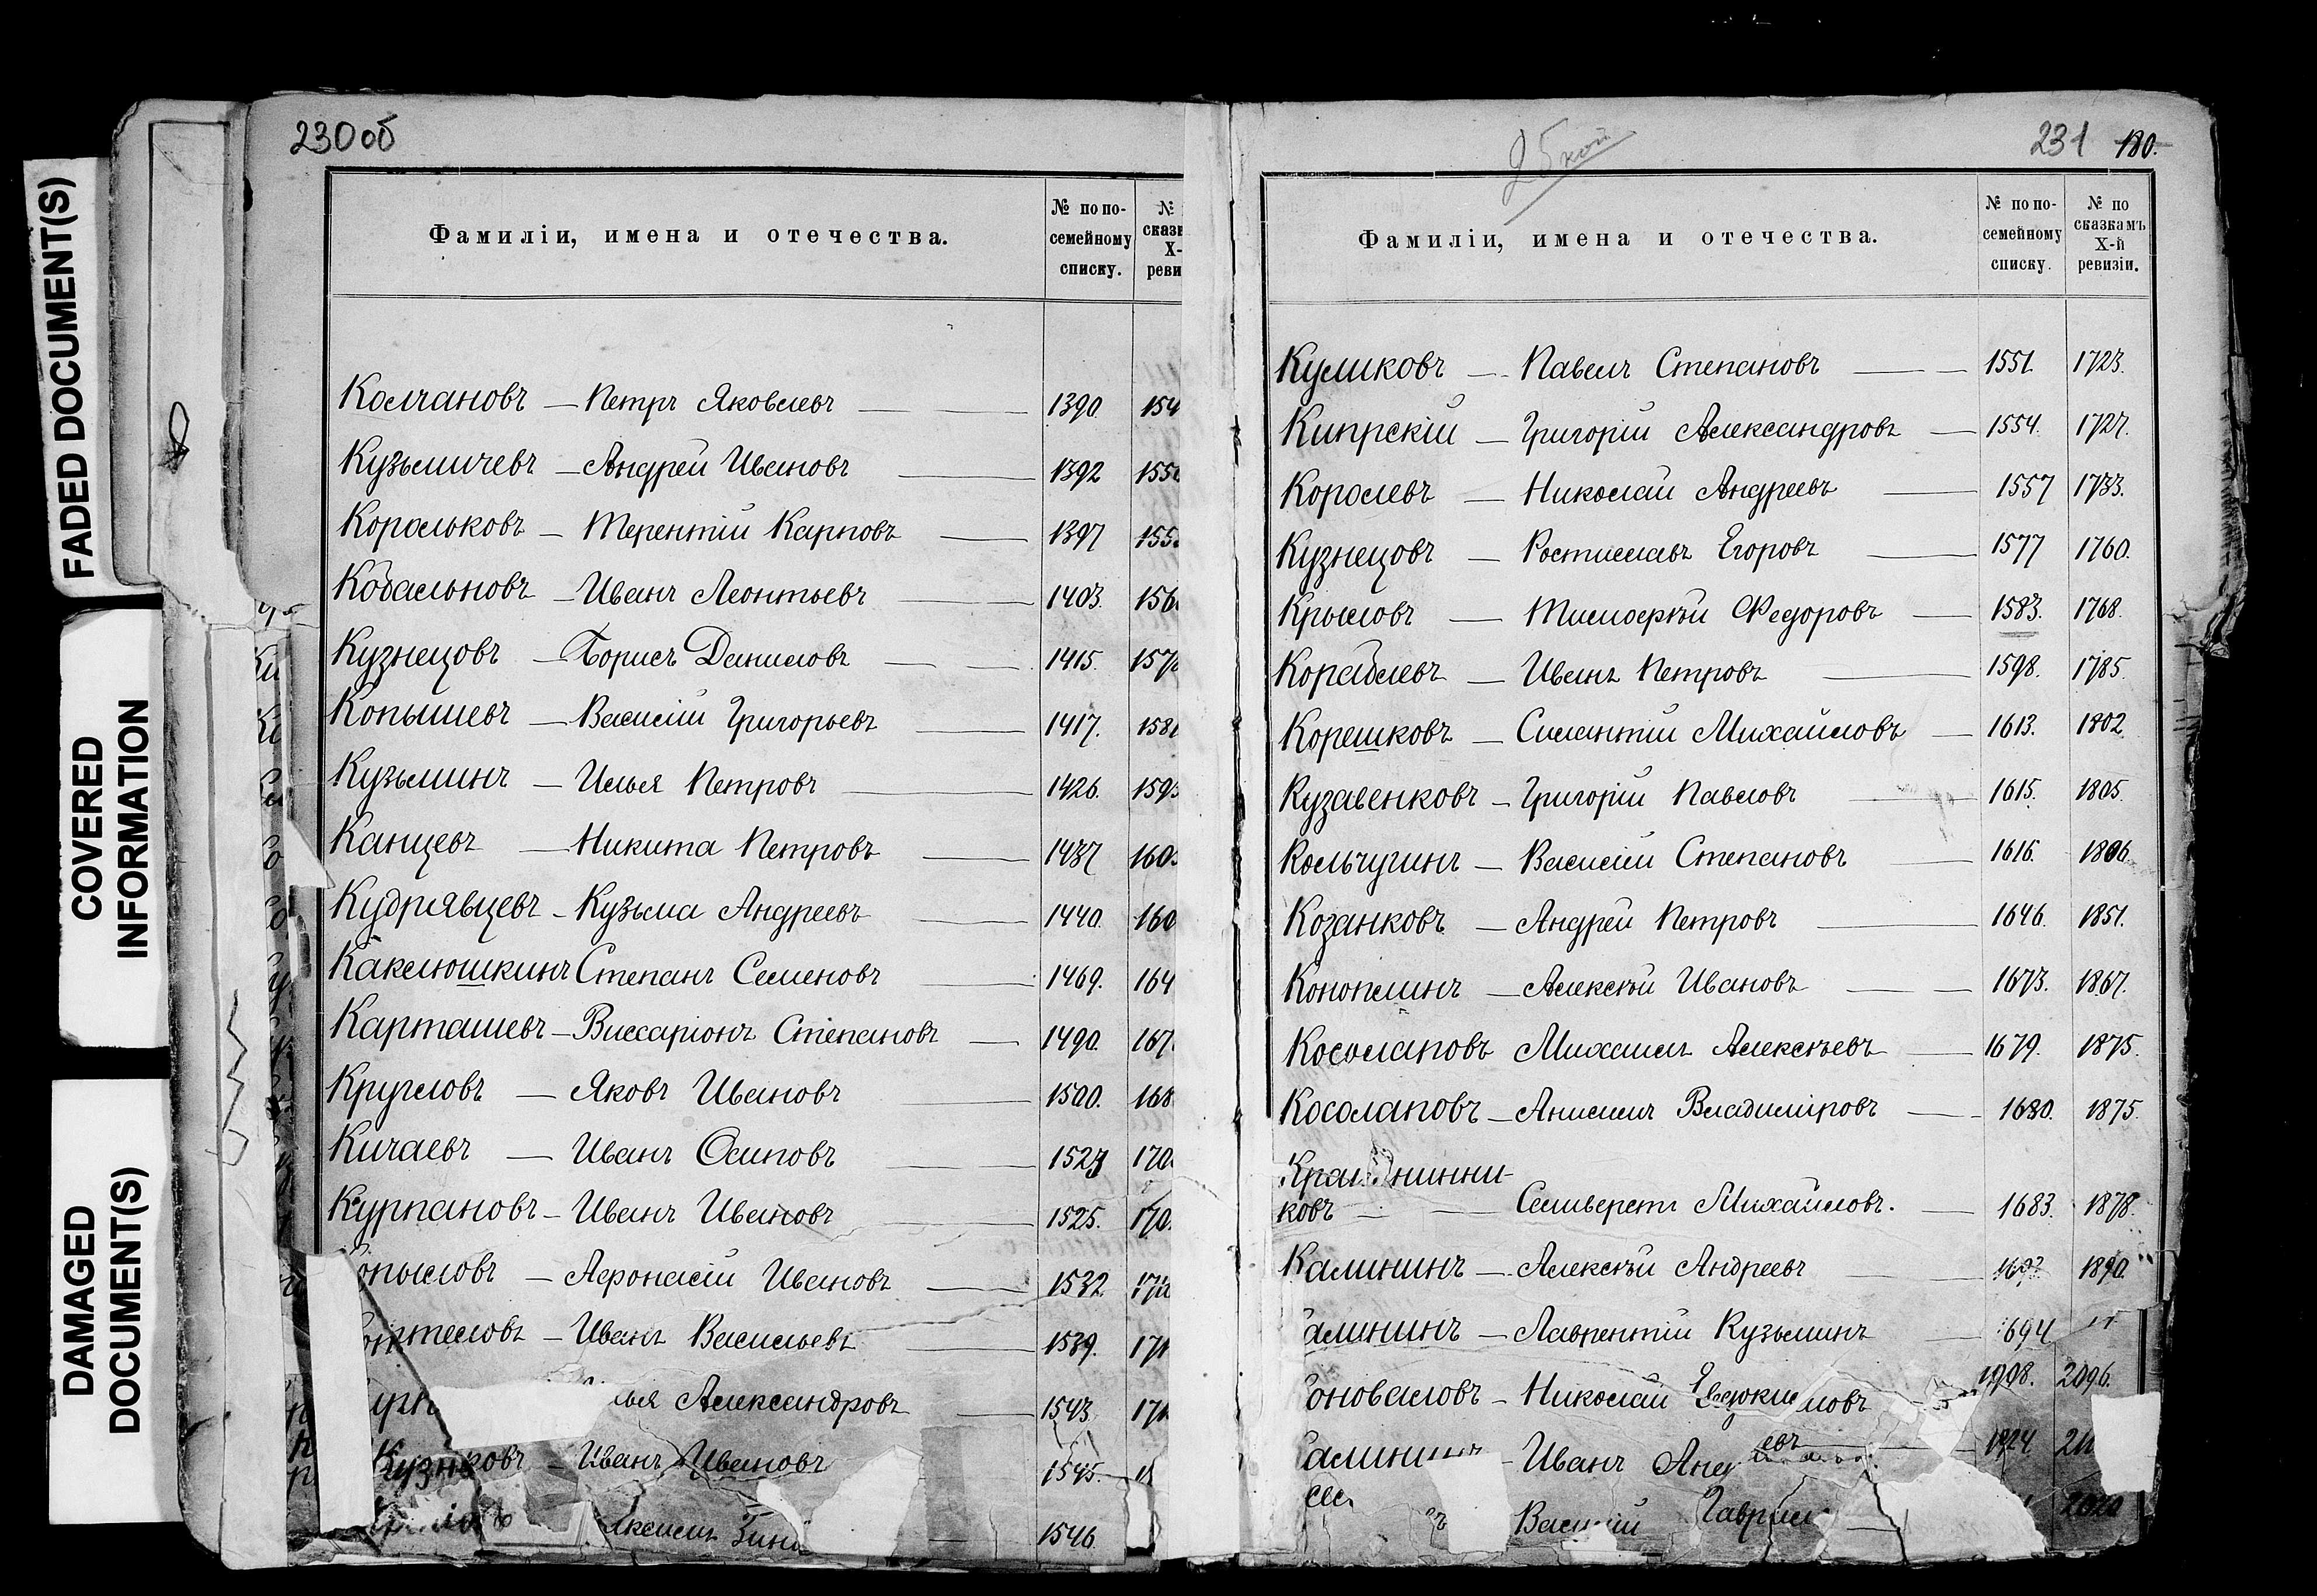 FADED DOCUMENT(S)
COVERED
INFORMATION
DAMAGED
DOCUMENT(S)
230об
Фамиліи, имена и отечества.
№ по по-
семейному
списку.
№
сказк
X-
реви
Колчановъ — Петръ Яковлевъ — 1390. 154
Кузьмичевъ — Андрей Ивановъ — 1392 155
Корольковъ — Терентій Карповъ — 1397 155
Кобальновъ — Иванъ Леонтьевъ — 1403. 156
Кузнецовъ — Борисъ Даниловъ — 1415. 157
Копышевъ — Василій Григорьевъ — 1417. 158
Кузьминъ — Илья Петровъ — 1426. 159
Канцевъ — Никита Петровъ — 1437 160
Кудрявцевъ — Кузьма Андреевъ — 1440. 160
Каклюшкинъ Степанъ Семеновъ — 1469. 164
Карташевъ — Виссаріонъ Степановъ — 1490. 167
Кругловъ — Яковъ Ивановъ — 1500. 168
Кичаевъ — Иванъ Осиповъ — 1524 170
Курпановъ — Иванъ Ивановъ — 1525. 170
опыловъ — Афонасій Ивановъ — 1532. 17
телловъ — Иванъ Васильевъ — 1539. 171
лья Александровъ — 1543. 171
Кузн ковъ — Иванъ Ивановъ 1545.
1546.
25 коп
231 180.
Фамиліи, имена и отечества.
№ по по-
семейному
списку.
№ по
сказкамъ
X-й
ревизіи.
Куликовъ — Павелъ Степановъ — 1551. 1723.
Кипрскій — Григорій Александровъ — 1554. 1727.
Королевъ — Николай Андреевъ — 1557 1733.
Кузнецовъ — Ростиславъ Егоровъ — 1577 1760.
Крыловъ — Тимофѣй Федоровъ — 1583. 1768.
Кораблевъ — Иванъ Петровъ — 1598. 1785.
Корешковъ — Силантій Михайловъ — 1613. 1802
Кузавенковъ — Григорій Павловъ — 1615. 1805.
Кольчугинъ — Василій Степановъ — 1616. 1806.
Козанковъ — Андрей Петровъ — 1646. 1851.
Коноплинъ — Алексѣй Ивановъ — 1673. 1867.
Косолаповъ Михаилъ Алексѣевъ — 1679. 1875.
Косолаповъ — Анисимъ Владиміровъ — 1680. 1875.
Кра нинни-
ковъ — Селиверстъ Михайловъ. — 1683. 1878.
Калининъ — Алексѣй Андреевъ 1693. 1890.
алининъ — Лаврентій Кузьминъ — 1694
оноваловъ — Николай Евдокимовъ 1908. 2096.
алинин — Иванъ Анд евъ — 1924. 211
Василій Гаврил — 2020